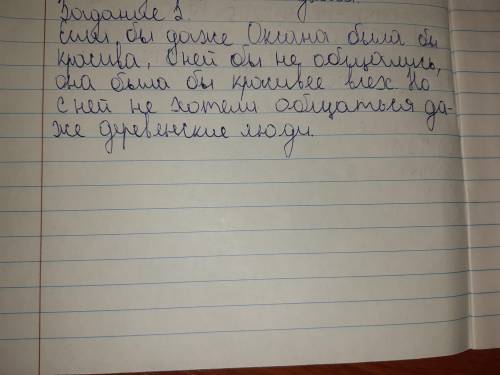 Задание 2.
если бы даже Оксана была бы
красива, с ней бы не общались,
она была бы красивее всех. Но
с ней не хотели общаться да-
же деревенские люди.